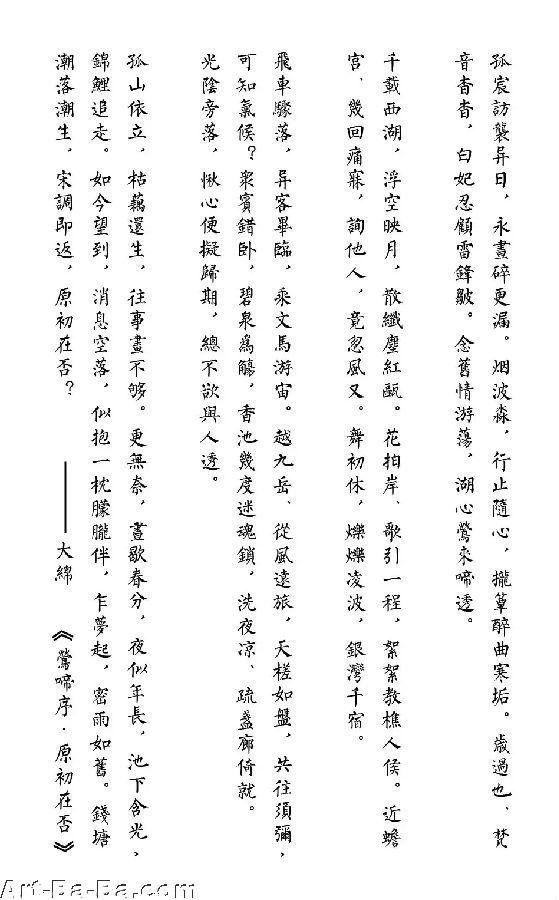 孤宸訪襲昇日，永晝碎更漏。烟波淼，行止隨心，攏蕈醉曲寒垢。歲過也、梵
音杳杳，白妃忍顧雷鋒皺。念舊情游蕩，湖心鶯來啼透。
千載西湖，浮空映月，散纖塵紅甌。花拍岸、歌引一程，絮絮教樵人侯。近蟾
宮、幾回痛寐，詢他人、竟忽風又。舞初休，爍爍凌波，銀灣千宿。
飛車驟落，昇客畢臨，乘文馬游宙。越九岳、從風遠旅，天槎如盤，共往須彌，
可知氣候？衆賓錯卧，碧泉為觴，香池幾度迷魂鎖，洗夜凉、疏盞廊倚就。
光陰旁落，楸心便擬歸期，總不欲與人透。
孤山依立，枯藕還生，往事畫不够。更無奈，晝歇春分，夜似年長，池下含光，
錦鯉追走。如今望到，消息空落，似抱一枕朦朧伴，乍夢起，密雨如舊。錢塘
潮落潮生，宋調即返，原初在否？ ——大綿 《鶯啼序·原初在否》
Art-Ba-Ba.com